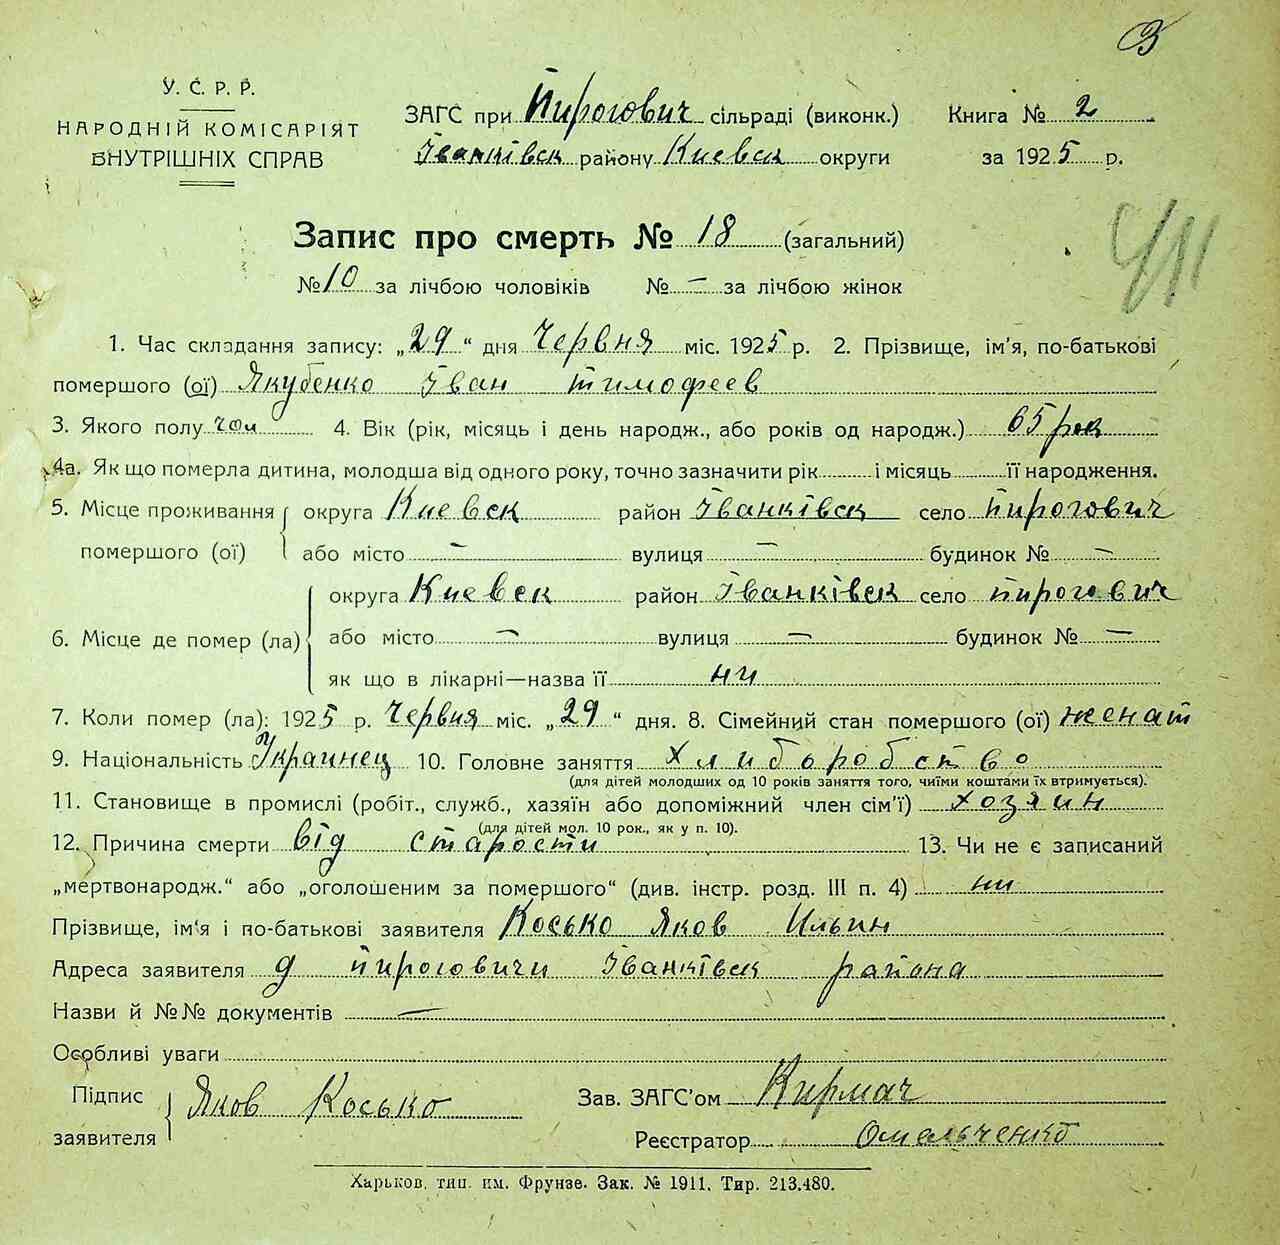 У. С. Р. Р.
НАРОДНІЙ КОМІСАРІЯТ
ВНУТРІШНІХ СПРАВ
ЗАГС при Пирогович сільраді (виконк.)
Іванківск району Киевск округи
Книга № 2
за 1925 р.
Запис про смерть № 18 (загальний)
№ 10 за лічбою чоловіків № — за лічбою жінок
1. Час складання запису: „29“ дня Червня міс. 1925 р. 2. Прізвище, ім'я, по-батькові
помершого (ої) Якубенко Іван тимофеев
3. Якого полу чол 4. Вік (рік, місяць і день народж., або років од народж.) 65 рок
4а. Як що померла дитина, молодша від одного року, точно зазначити рік і місяць її народження.
5. Місце проживання помершого (ої) округа Киевск район Іванківск село пирогович
або місто — вулиця — будинок № —
6. Місце де помер (ла) округа Киевск район Іванківск село пирогович
або місто — вулиця — будинок № —
як що в лікарні—назва її ни
7. Коли помер (ла): 1925 р. Червня міс. „29“ дня. 8. Сімейний стан помершого (ої) женат
9. Національність Украинец 10. Головне заняття хлиборобство
(для дітей молодших од 10 років заняття того, чиїми коштами їх втримується).
11. Становище в промислі (робіт., служб., хазяїн або допоміжний член сім'ї) хозяин
(для дітей мол. 10 рок., як у п. 10).
12. Причина смерти від старости 13. Чи не є записаний
„мертвонародж.“ або „оголошеним за помершого“ (див. інстр. розд. III п. 4) ни
Прізвище, ім'я і по-батькові заявителя Косько Яков Ильин
Адреса заявителя д пироговичи Іванківск района
Назви й №№ документів —
Особливі уваги
Підпис заявителя Яков Косько
Зав. ЗАГС'ом Кирмач
Реєстратор Омельченко
Харьков, тип. им. Фрунзе. Зак. № 1911. Тир. 213.480.